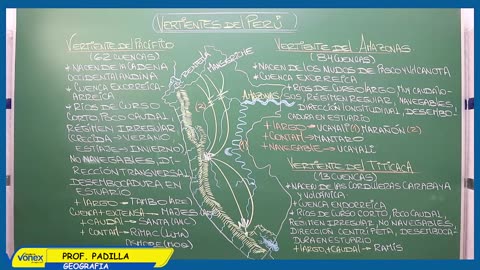 VERTIENTES DEL PERÚ
VERTIENTE DEL PACÍFICO
(62 CUENCAS)
* NACEN DE LA CADENA
OCCIDENTAL ANDINA
* CUENCA EXORREICA-
ARREICA
* RÍOS DE CURSO
CORTO, POCO CAUDAL,
RÉGIMEN IRREGULAR
(CRECIDA → VERANO
ESTIAJE → INVIERNO)
NO NAVEGABLES, DI-
RECCIÓN TRANSVERSAL
DESEMBOCADURA EN
ESTUARIO
+ LARGO → TAMBO (ARE)
CUENCA + EXTENSA → MAJES (ARE)
+ CAUDAL → SANTA (ANC)
+ CONTAM → RÍMAC (LIMA)
(MOQ)
(2)
(1)
VERTIENTE DEL AMAZONAS
(84 CUENCAS)
* NACEN DE LOS NUDOS DE PASCO Y VILCANOTA
* CUENCA EXORREICA
* RÍOS DE CURSO LARGO, MUY CAUDALO-
SOS, RÉGIMEN REGULAR, NAVEGABLES,
DIRECCIÓN LONGITUDINAL, DESEMBO-
CADURA EN ESTUARIO
AMAZONAS
+ LARGO → UCAYALI (1) MARAÑÓN (2)
+ CONTAM → MANTARO
+ NAVEGABLE → UCAYALI
VERTIENTE DEL TITICACA
(13 CUENCAS)
* NACEN DE LAS CORDILLERAS CARABAYA
Y VOLCÁNICA
* CUENCA ENDORREICA
* RÍOS DE CURSO CORTO, POCO CAUDAL,
RÉGIMEN IRREGULAR, NO NAVEGABLES,
DIRECCIÓN CENTRÍPETA, DESEMBOCA-
DURA EN ESTUARIO
+ LARGO, + CAUDAL → RAMIS
vonex
PROF. PADILLA
GEOGRAFÍA